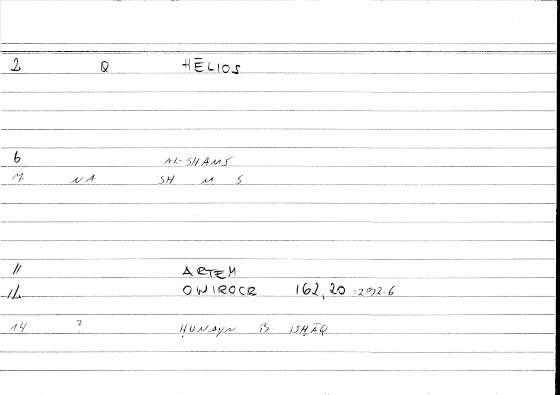 2 Q HĒLIOS
6 AL-SHAMS
7 NA SH M S
11 ARTEM
12 ONIROCR 162,20 :292.6
14 ? ḤUNAYN B ISḤĀQ